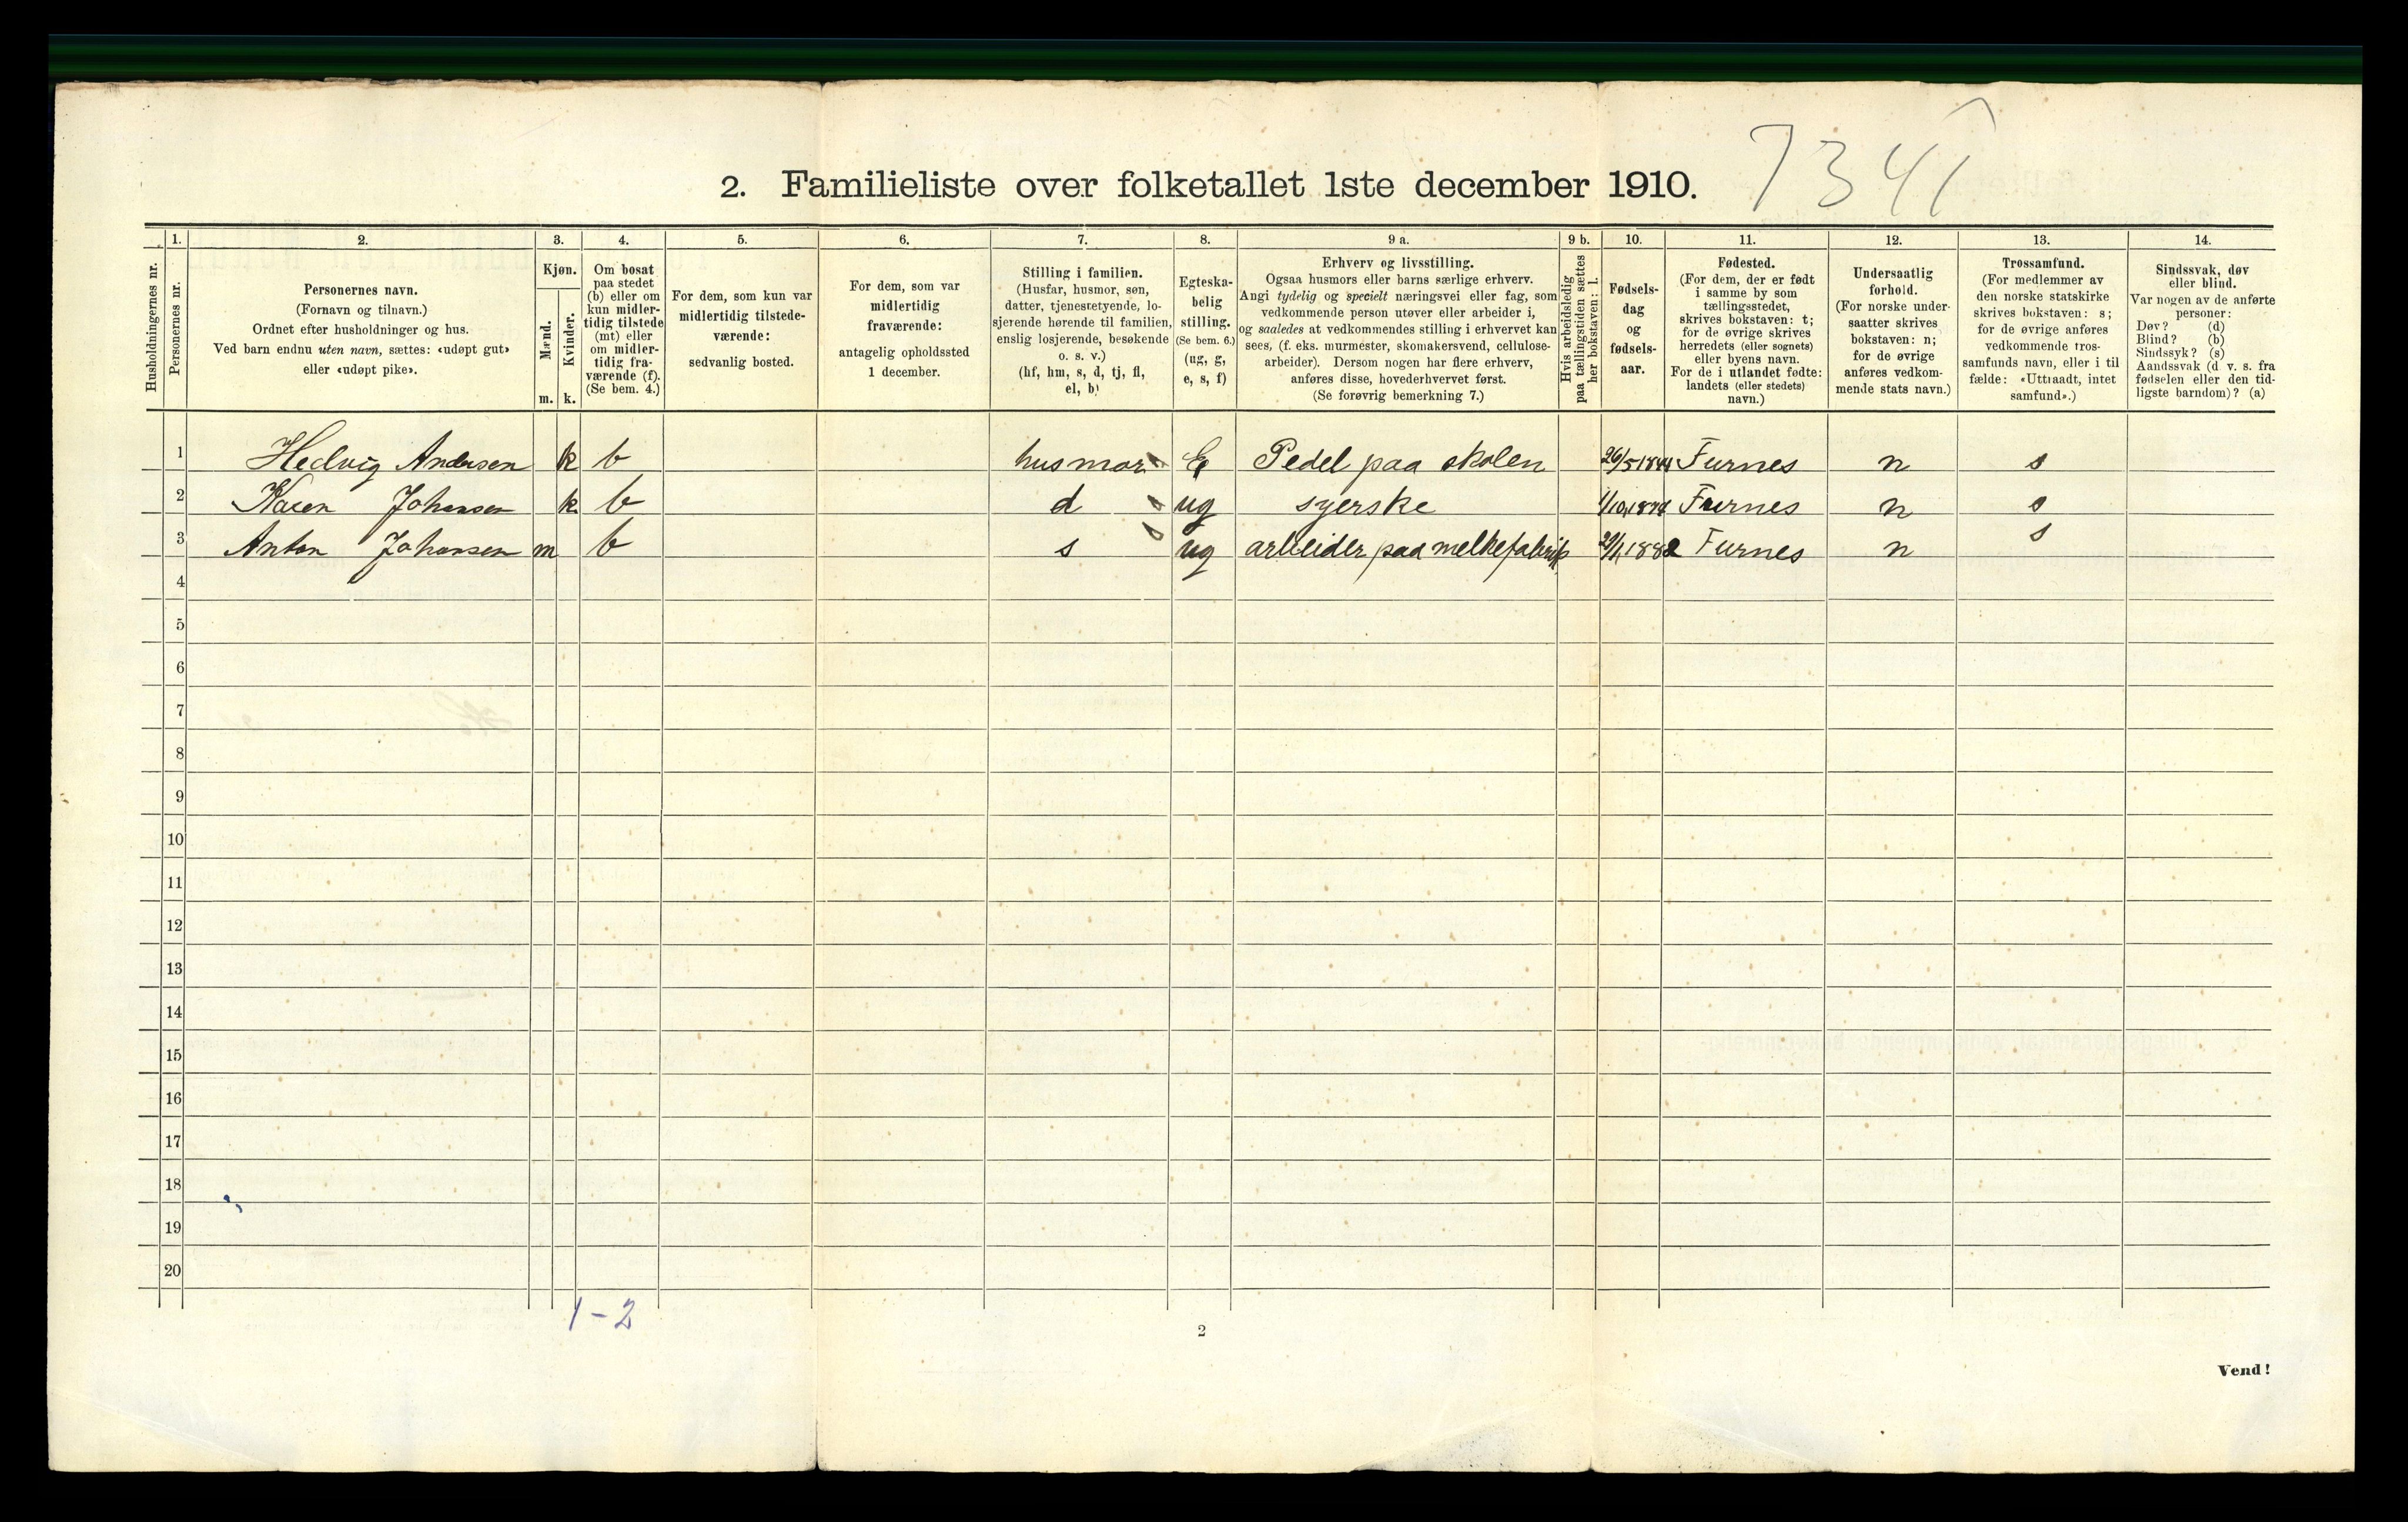 7341
2. Familieliste over folketallet 1ste december 1910.
1. 2. 3. 4. 5. 6. 7. 8. 9 a. 9 b. 10. 11. 12. 13. 14.
Husholdningernes nr.
Personernes nr.
Personernes navn.
(Fornavn og tilnavn.)
Ordnet efter husholdninger og hus.
Ved barn endnu uten navn, sættes: «udøpt gut»
eller «udøpt pike».
Kjøn.
Mænd.
Kvinder.
m. k.
Om bosat
paa stedet
(b) eller om
kun midler-
tidig tilstede
(mt) eller
om midler-
tidig fra-
værende (f).
(Se bem. 4.)
For dem, som kun var
midlertidig tilstede-
værende:
sedvanlig bosted.
For dem, som var
midlertidig
fraværende:
antagelig opholdssted
1 december.
Stilling i familien.
(Husfar, husmor, søn,
datter, tjenestetyende, lo-
sjerende hørende til familien,
enslig losjerende, besøkende
o. s. v.)
(hf, hm, s, d, tj, fl,
el, b)
Egteska-
belig
stilling.
(Se bem. 6.)
(ug, g,
e, s, f)
Erhverv og livsstilling.
Ogsaa husmors eller barns særlige erhverv.
Angi tydelig og specielt næringsvei eller fag, som
vedkommende person utøver eller arbeider i,
og saaledes at vedkommendes stilling i erhvervet kan
sees, (f. eks. murmester, skomakersvend, cellulose-
arbeider). Dersom nogen har flere erhverv,
anføres disse, hovederhvervet først.
(Se forøvrig bemerkning 7.)
Hvis arbeidsledig
paa tællingstiden sættes
her bokstaven: l.
Fødsels-
dag
og
fødsels-
aar.
Fødested.
(For dem, der er født
i samme by som
tællingsstedet,
skrives bokstaven: t;
for de øvrige skrives
herredets (eller sognets)
eller byens navn.
For de i utlandet fødte:
landets (eller stedets)
navn.)
Undersaatlig
forhold.
(For norske under-
saatter skrives
bokstaven: n;
for de øvrige
anføres vedkom-
mende stats navn.)
Trossamfund.
(For medlemmer av
den norske statskirke
skrives bokstaven: s;
for de øvrige anføres
vedkommende tros-
samfunds navn, eller i til
fælde: «Uttraadt, intet
samfund».)
Sindssvak, døv
eller blind.
Var nogen av de anførte
personer:
Døv? (d)
Blind? (b)
Sindssyk? (s)
Aandssvak (d v. s. fra
fødselen eller den tid-
ligste barndom)? (a)
1 Hedvig Andersen k b husmor E Pedel paa skolen 26/5 Furnes n s
2 Karen Johansen k b d ug syerske 1/10 Furnes n s
3 Anton Johansen m b s ug arbeider paa melkefabrik 1882 Furnes n s
4
5
6
7
8
9
10
11
12
13
14
15
16
17
18
19
20
1-2
2
Vend!